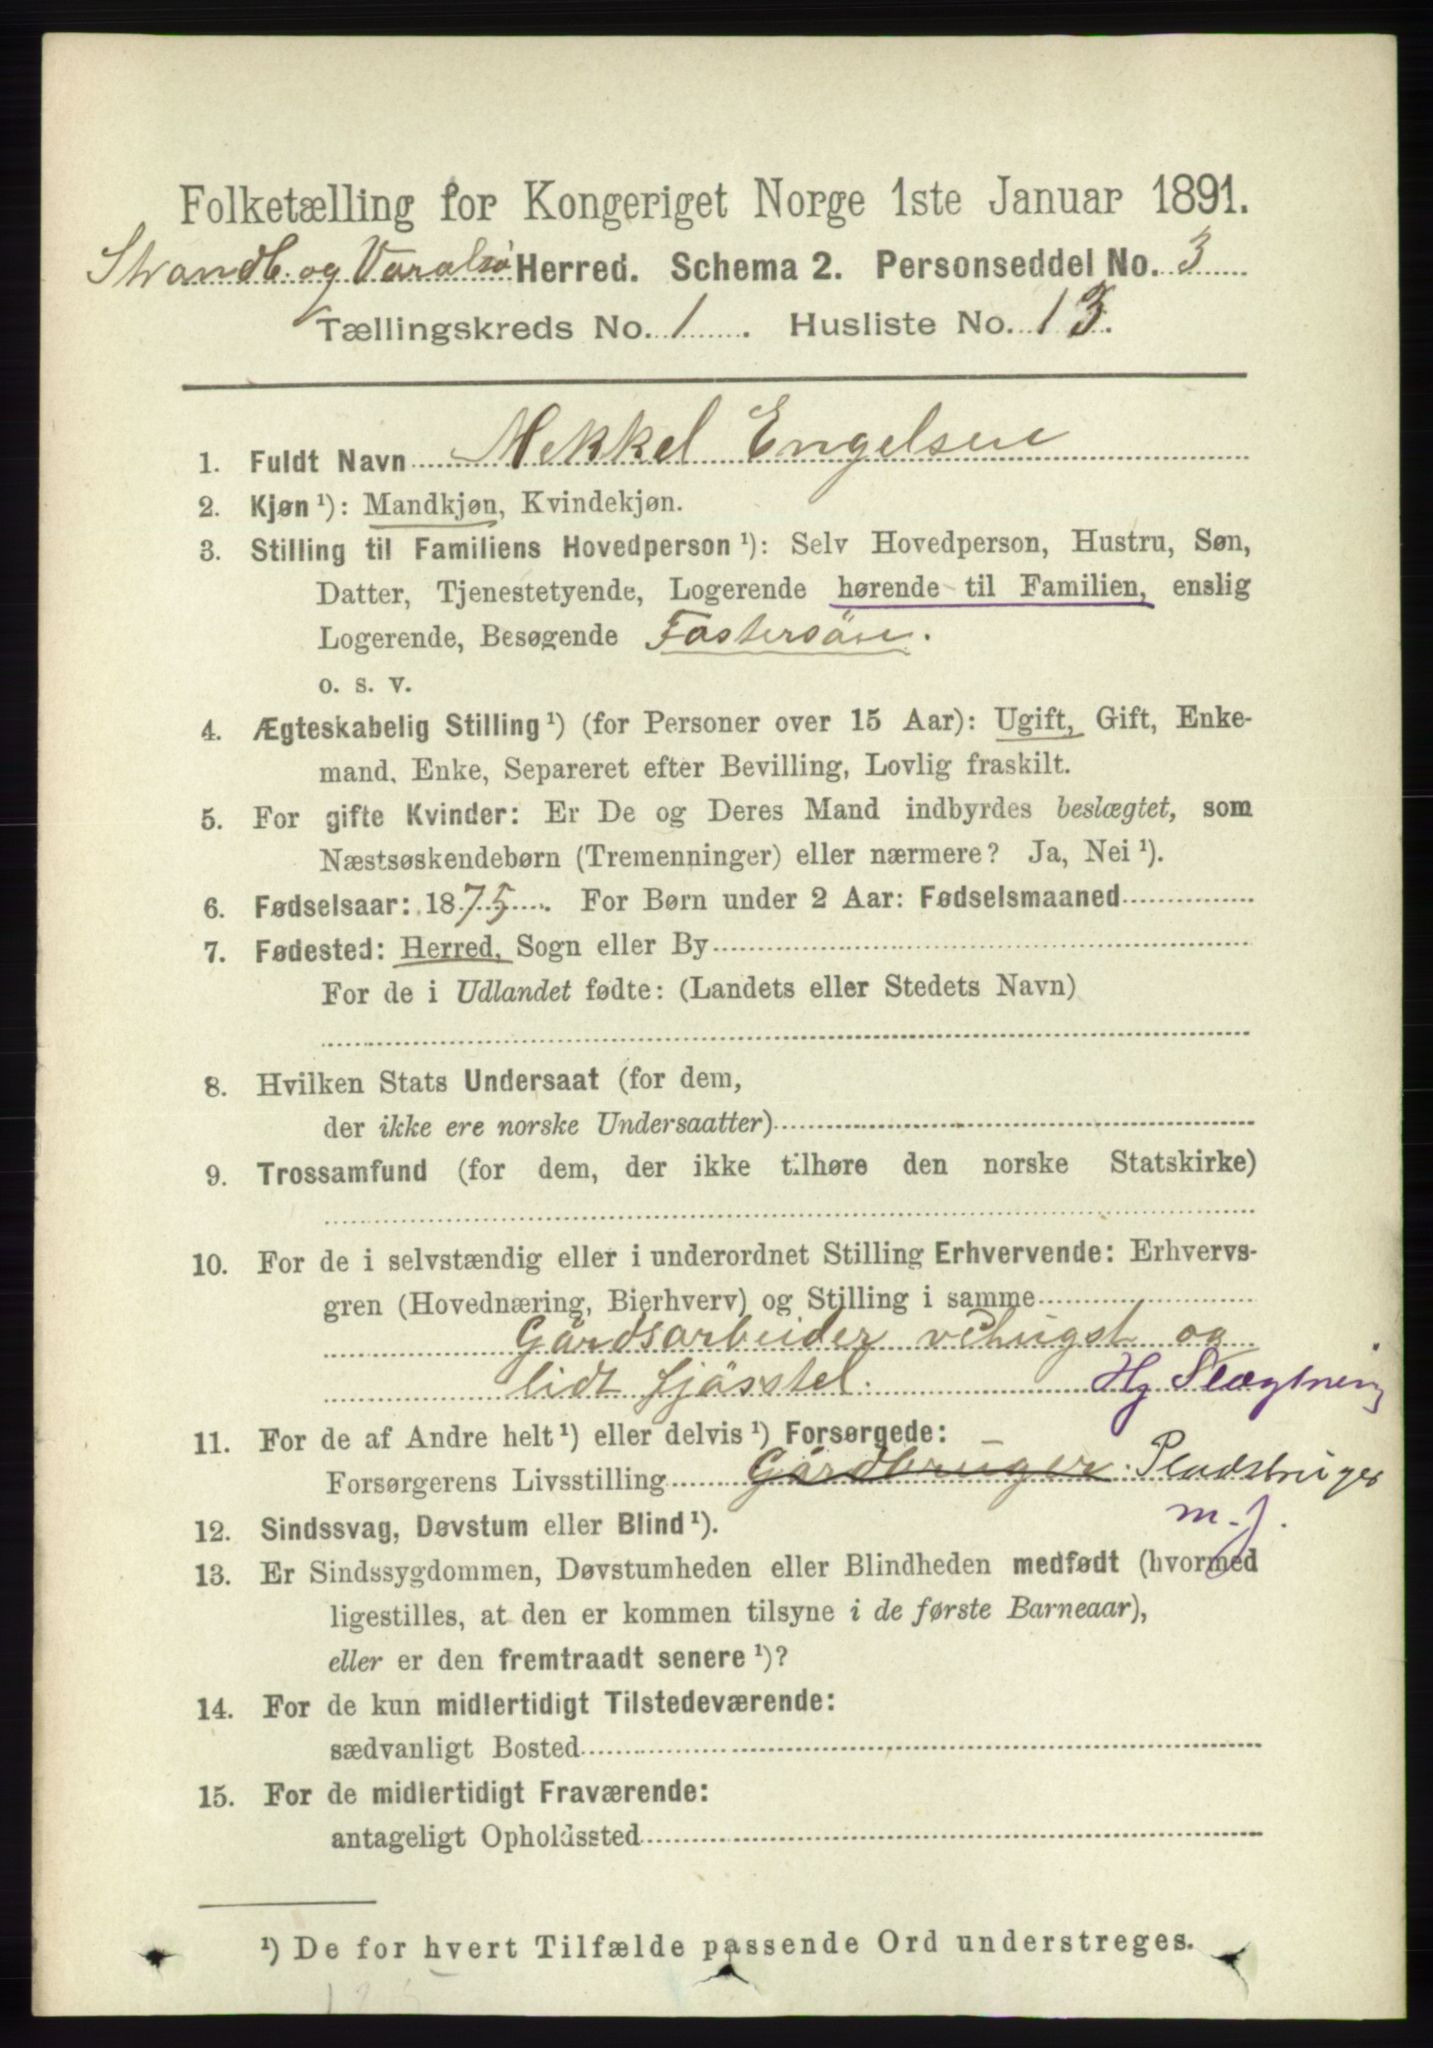 Folketælling for Kongeriget Norge 1ste Januar 1891.
Strandb. og Varalsö Herred. Schema 2. Personseddel No. 3
Tællingskreds No. 1. Husliste No. 13.
1. Fuldt Navn Mekkel Engelsen
2. Kjøn ¹): Mandkjøn, Kvindekjøn.
3. Stilling til Familiens Hovedperson ¹): Selv Hovedperson, Hustru, Søn,
Datter, Tjenestetyende, Logerende hørende til Familien, enslig
Logerende, Besøgende Fostersön.
o. s. v.
4. Ægteskabelig Stilling ¹) (for Personer over 15 Aar): Ugift, Gift, Enke-
mand, Enke, Separeret efter Bevilling, Lovlig fraskilt.
5. For gifte Kvinder: Er De og Deres Mand indbyrdes beslægtet, som
Næstsøskendebørn (Tremenninger) eller nærmere? Ja, Nei ¹).
6. Fødselsaar: 1875. For Børn under 2 Aar: Fødselsmaaned
7. Fødested: Herred, Sogn eller By
For de i Udlandet fødte: (Landets eller Stedets Navn)
8. Hvilken Stats Undersaat (for dem,
der ikke ere norske Undersaatter)
9. Trossamfund (for dem, der ikke tilhøre den norske Statskirke)
10. For de i selvstændig eller i underordnet Stilling Erhvervende: Erhvervs-
gren (Hovednæring, Bierhverv) og Stilling i samme
Gårdsarbeider og
lidt fjösstel. Hg Slægtning
11. For de af Andre helt ¹) eller delvis ¹) Forsørgede:
Forsørgerens Livsstilling Gårdbruger. Pladsbruger
m. J.
12. Sindssvag, Døvstum eller Blind ¹).
13. Er Sindssygdommen, Døvstumheden eller Blindheden medfødt (hvormed
ligestilles, at den er kommen tilsyne i de første Barneaar),
eller er den fremtraadt senere ¹)?
14. For de kun midlertidigt Tilstedeværende:
sædvanligt Bosted
15. For de midlertidigt Fraværende:
antageligt Opholdssted
¹) De for hvert Tilfælde passende Ord understreges.